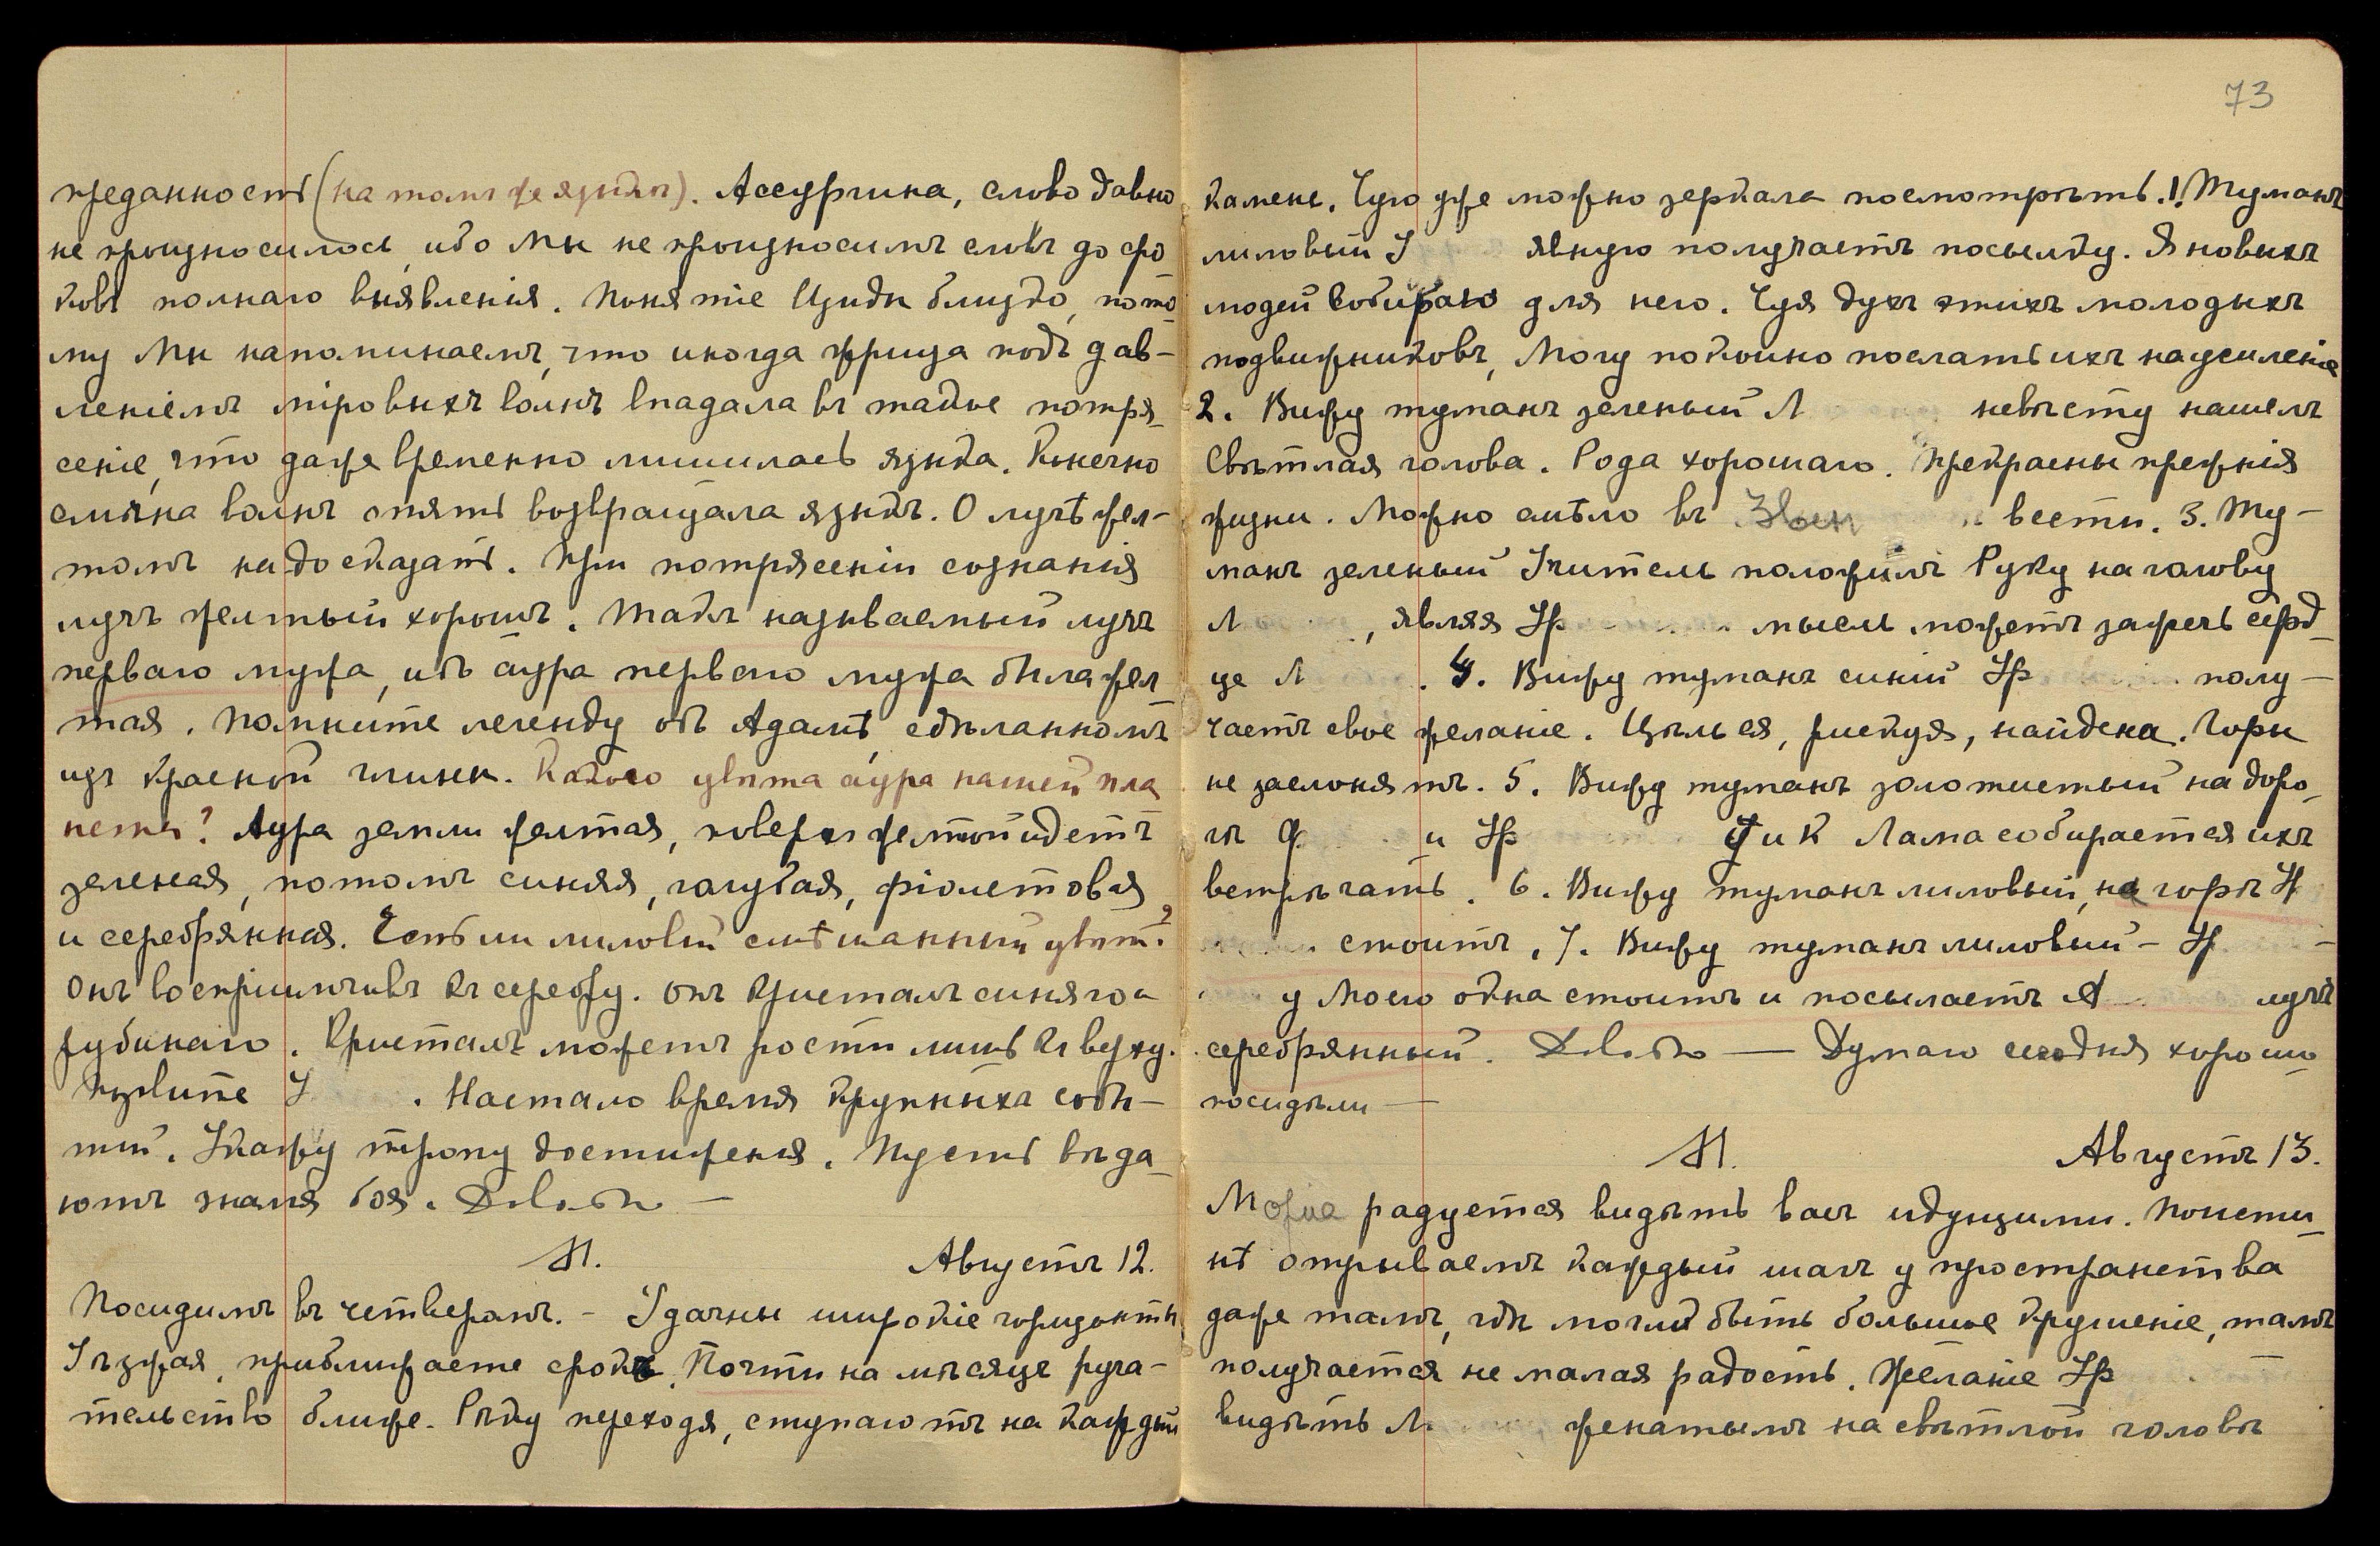 преданность (на томъ же языкѣ). Ассургина, слово давно
не произносилось, ибо Мы не произносимъ словъ до сро
ковъ полнаго выявленія. Понятіе Изиды близко, пото-
му Мы напоминаемъ, что иногда жрица подъ дав-
леніемъ міровыхъ волнъ впадала въ такое потря-
сеніе, что даже временно лишилась языка. Конечно
смѣна волнъ опять возвращала языкъ. О лучѣ жел-
томъ надо сказать. При потрясеніи сознанія
лучъ желтый хорошъ. Такъ называемый лучъ
перваго мужа, ибо аура перваго мужа была жел-
тая. Помните легенду объ Адамѣ, сдѣланномъ
изъ красной глины. Какого цвѣта аура нашей пла
неты? Аура земли желтая, поверхъ желтой идетъ
зеленая, потомъ синяя, голубая, фіолетовая
и серебрянная. Есть ли лиловый смѣшанный цвѣтъ?
Онъ воспріимчивъ къ серебру. Онъ кристалъ синяго и
рубинаго. Кристалъ можетъ рости лишь къ верху.
У . Настало время крупныхъ собы-
тій. Укажу тропу достиженія. Пусть выда-
ютъ знамя боя.
Августъ 12.
Посидимъ въ четвергъ. - Удачны широкіе горизонты
Уѣзжая, приближаете срокъ. Почти на мѣсяцъ руча-
тельство ближе. Рѣку переходя, ступаютъ на каждый
73
камень. Чую уже можно зеркала посмотрѣть.!. Туманъ
лиловый У явную получаетъ посылку. Я новыхъ
людей собираю для него. Чуя духъ этихъ молодыхъ
подвижниковъ, Могу покойно послать ихъ на усиленіе
2. Вижу туманъ зеленый Л невѣсту нашелъ
Свѣтлая голова. Рода хорошаго. Прекрасны прежнія
жизни. Можно смѣло въ Звен вести. 3. Ту-
манъ зеленый Учитель положилъ Руку на голову
Л , являя Юр мысль можетъ зажечь серд-
це Л . 4. Вижу туманъ синій Юр полу-
чаетъ свое желаніе. Цѣль ея, рискуя, найдена. Горы
не заслонятъ. 5. Вижу туманъ золотистый на доро-
гѣ Ф и Юр и К Лама собирается ихъ
встрѣчать. 6. Вижу туманъ лиловый, на горѣ Ю
стоитъ. 7. Вижу туманъ лиловый - Ю -
у Моего окна стоитъ и посылаетъ А лучъ
серебрянный. — Думаю сегодня хорошо
посидѣли —
Августъ 13.
Мориа радуется видѣть васъ идущими. Поисти-
нѣ отрываемъ каждый шагъ у пространства
даже тамъ, гдѣ могло быть большое крушеніе, тамъ
получается не малая радость. Желаніе Юр
видѣть Л женатымъ на свѣтлой головѣ